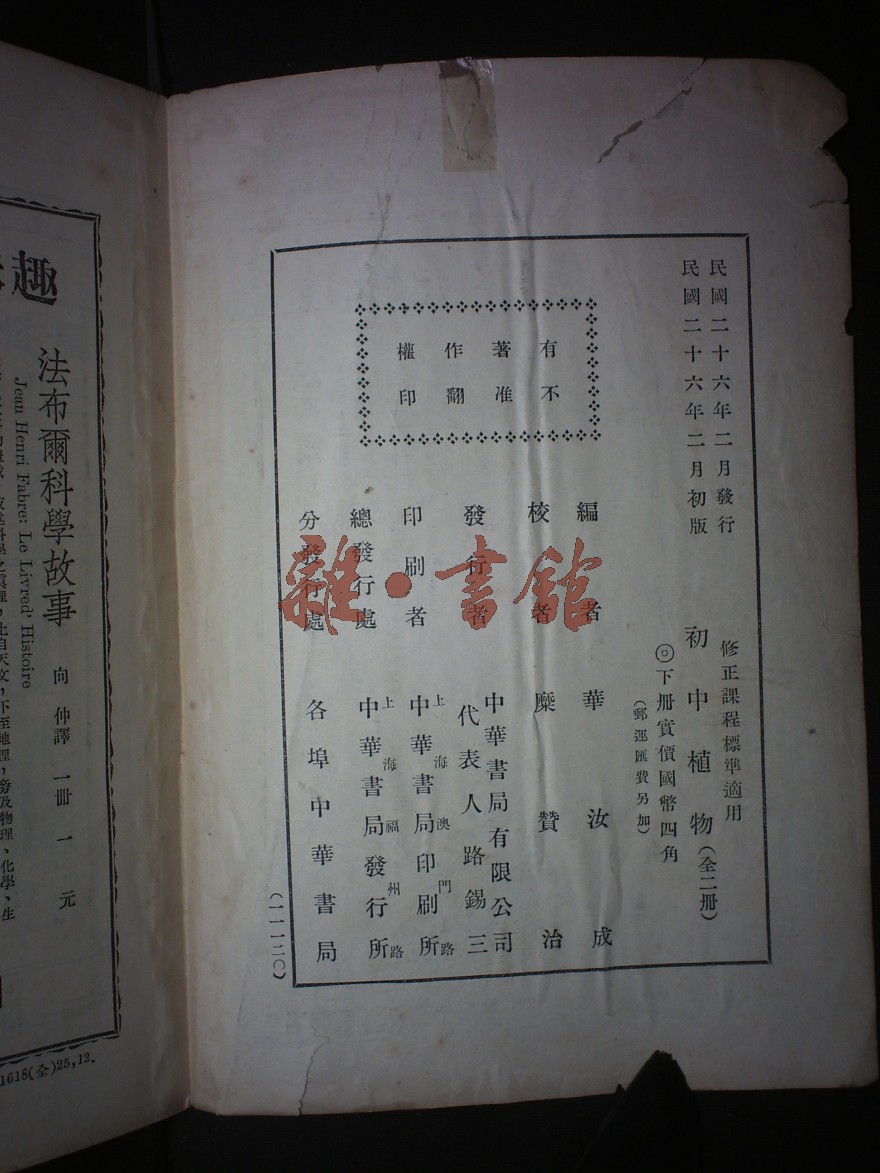 民國二十六年二月發行
民國二十六年二月初版
修正課程標準適用
初中植物(全二冊)
◎下冊實價國幣四角
(郵運匯費另加)
有著作權
不准翻印
編者 華汝成
校者 糜贊治
發行者 中華書局有限公司
代表人路錫三
印刷者 上海澳門路
中華書局印刷所
總發行處 上海福州路
中華書局發行所
分發行處 各埠中華書局
(一一一二〇)
雜·書館
趣
法布爾科學故事
Jean Henri Fabre: Le Livred' Histoire
向仲譯 一冊 一元
止自天文，下至地理，旁及物理、化學、生
1618(全)25,12.